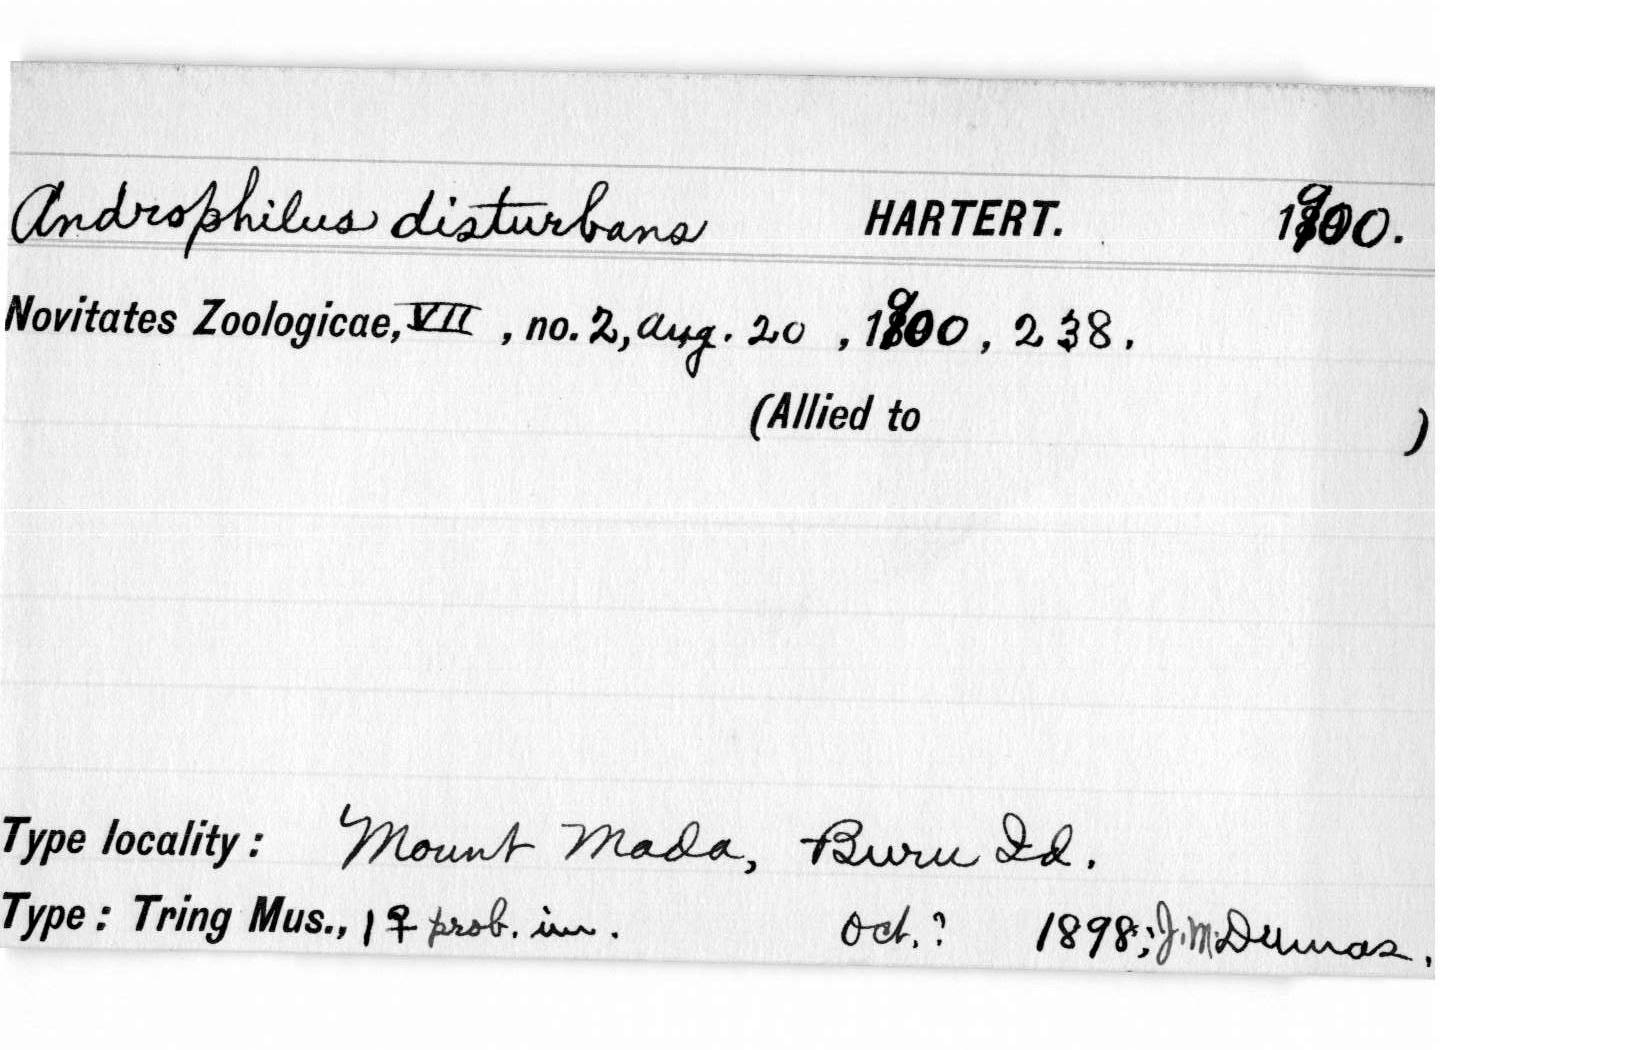 Androphilus disturbans HARTERT. 1900.
Novitates Zoologicae, VII, no. 2, Aug. 20, 1900, 238.
(Allied to )
Type locality: Mount Mada, Buru Id.
Type: Tring Mus., 1 ♀ prob. im. Oct.? 1898; J.M. Dumas.